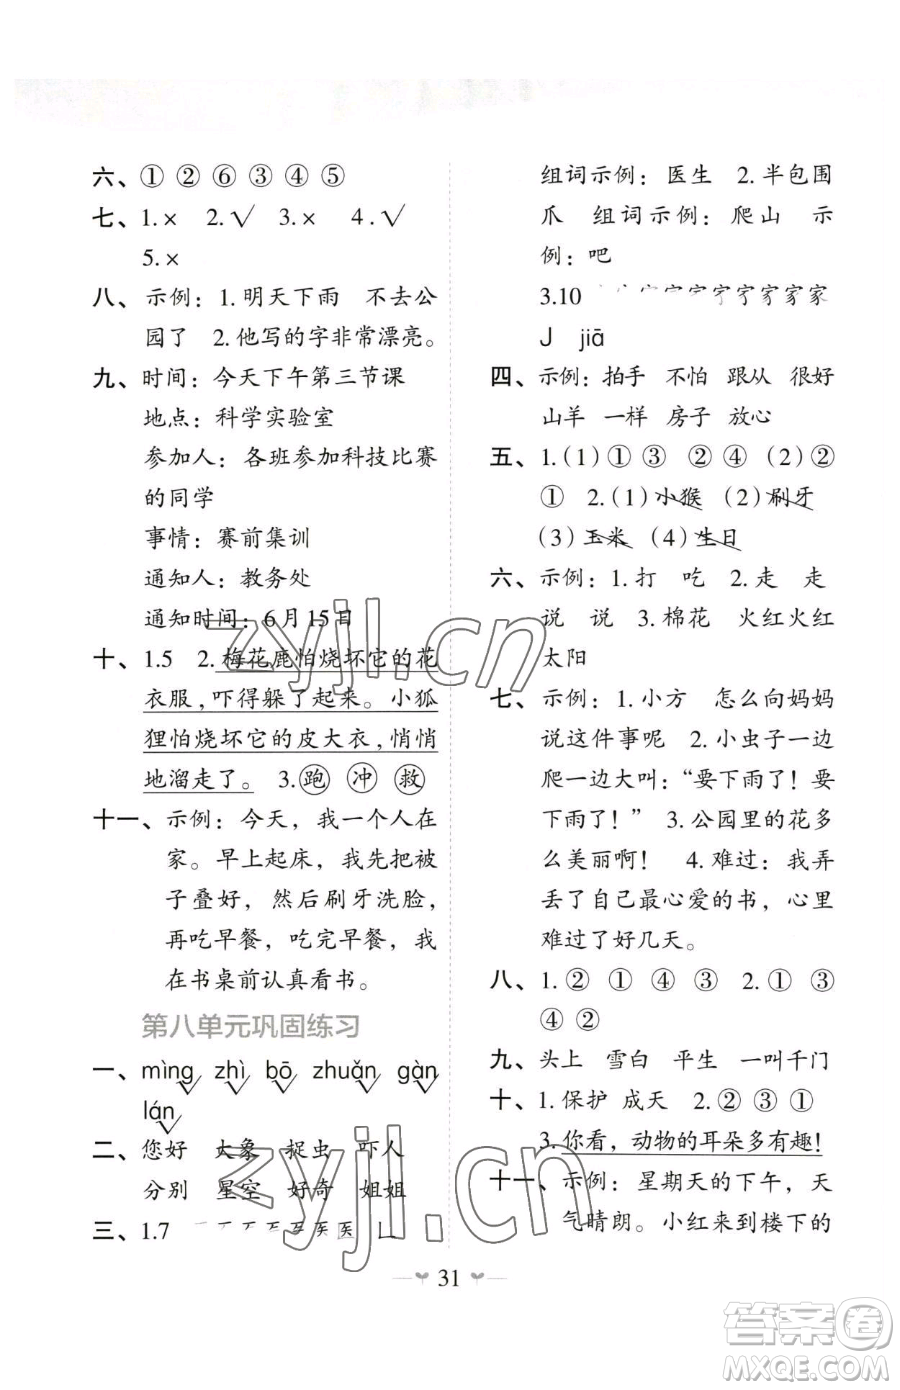 六、① ② ⑥ ③ ④ ⑤
七、1.× 2.√ 3.× 4.√
5.×
八、示例：1.明天下雨 不去公
园了 2.他写的字非常漂亮。
九、时间：今天下午第三节课
地点：科学实验室
参加人：各班参加科技比赛
的同学
事情：赛前集训
通知人：教务处
通知时间：6月15日
十、1.5 2.梅花鹿怕烧坏它的花
衣服，吓得躲了起来。小狐
狸怕烧坏它的皮大衣，悄悄
地溜走了。 3.跑 冲 救
十一、示例：今天，我一个人在
家。早上起床，我先把被
子叠好，然后刷牙洗脸，
再吃早餐，吃完早餐，我
在书桌前认真看书。
第八单元巩固练习
一、mìng zhì bō zhuǎn gàn
lán
二、您好 大象 捉虫 吓人
分别 星空 好奇 姐姐
三、1.7 医
组词示例：医生 2.半包围
爪 组词示例：爬山 示
例：吧
3.10 家
J jiā
四、示例：拍手 不怕 跟从 很好
山羊 一样 房子 放心
五、1.(1)① ③ ② ④ (2)②
① 2.(1)小猴 (2)刷牙
(3)玉米 (4)生日
六、示例：1.打 吃 2.走 走
说 说 3.棉花 火红火红
太阳
七、示例：1.小方 怎么向妈妈
说这件事呢 2.小虫子一边
爬一边大叫：“要下雨了！要
下雨了！” 3.公园里的花多
么美丽啊！ 4.难过：我弄
丢了自己最心爱的书，心里
难过了好几天。
八、1.② ① ④ ③ 2.① ③
④ ②
九、头上 雪白 平生 一叫千门
十、1.保护 成天 2.② ③ ①
3.你看，动物的耳朵多有趣！
十一、示例：星期天的下午，天
气晴朗。小红来到楼下的
31
zyjl.cn
zyjl.cn
答案圈
MXQE.COM